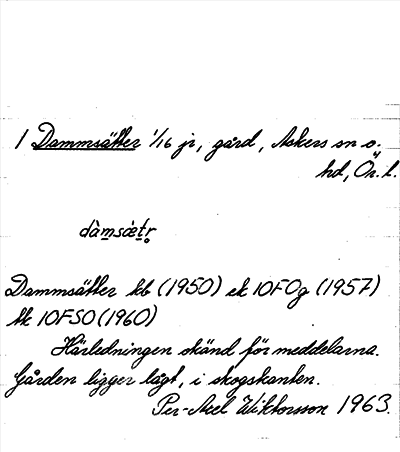 1 Dammsätter 1/16 jr, gård, Askers sn o.
hd, Ör. l.
dàmsæ̀tr̥
Dammsätter kb (1950) ek 10FOg (1957)
tk 10FSO (1960)
Härledningen okänd för meddelarna.
Gården ligger lågt, i skogskanten.
Per-Axel Wiktorsson 1963.